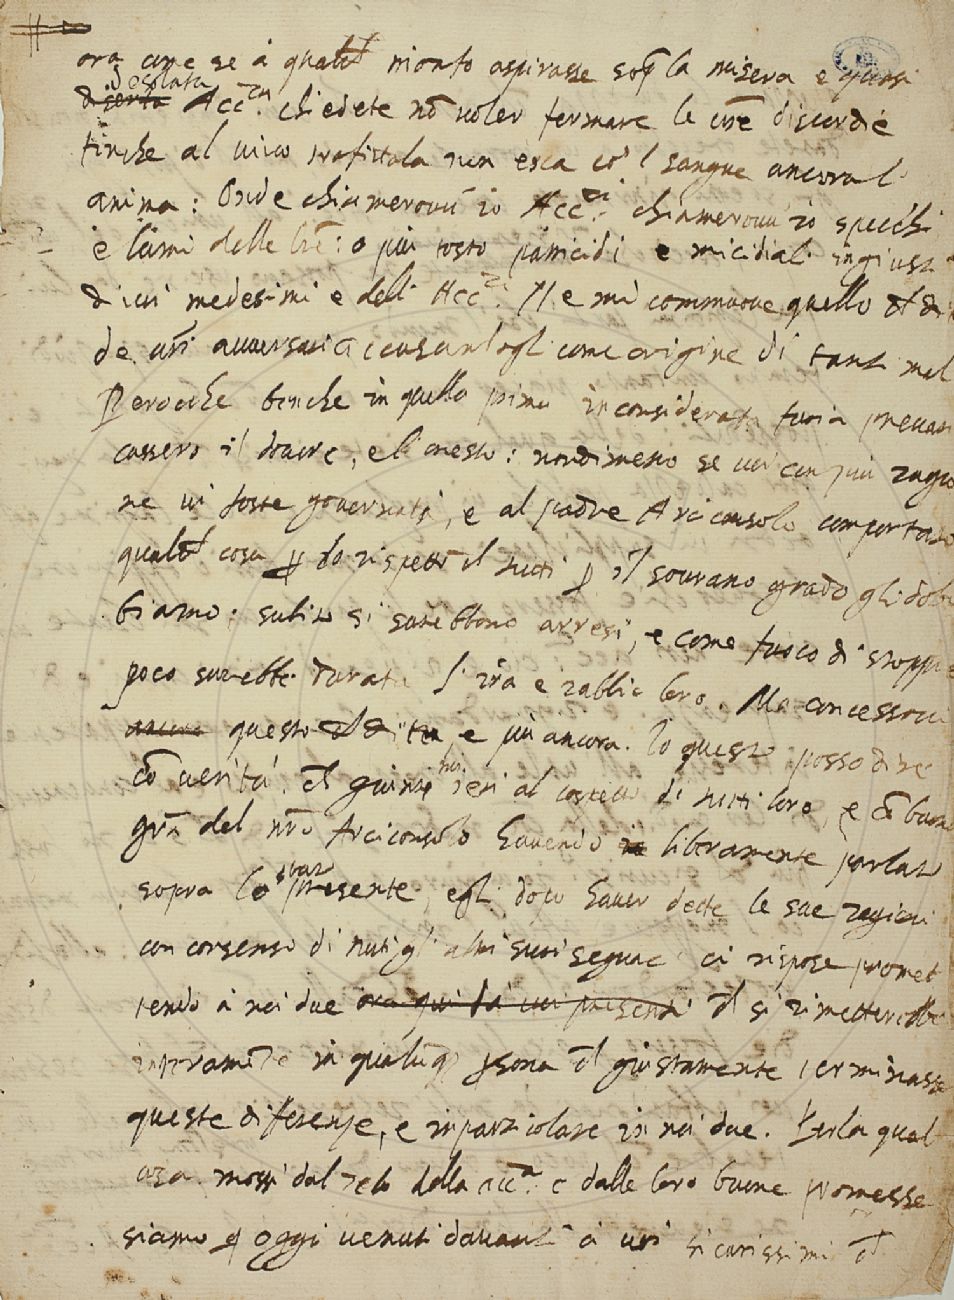 ora come se à qualch trionfo aspirasse sop la misera e quasi
diserta desolata Accia. chiedete nō voler fermare le vre discordie
finche al vivo trafittala non esca co'l sangue ancora l'
anima: Onde chiamerovvi io Accci. chiamerovvi io specchi
e lumi delle lre: o più tosto parricidi e micidiali ingiusti
di voi medesimi e dell' Accia. Ne mi commuove quello
de vri avversari accusandogli come origine di tanti mal
Peroche benche in quella prima inconsiderata furia prevari
cassero il dovere, e l'onesto: nondimeno se voi con più ragio
ne vi foste governati, e al padre Arciconsolo comportato
qualch cosa p lo rispetto ch tutti p il sovrano grado gli dob
biamo: subito si sarebbono arresi, e come fuoco di stoppie
poco sarebbe durata l'ira e rabbia loro. Ma concessovi
ancora questo e più ancora. Io questo posso dire
cō verità, ch giunti noi ieri al cospetto di tutti loro, e cō buona
gra del nro Arciconsolo havendo liberamente parlato
sopra lo stato presente, egli dopo haver dette le sue ragioni
con consenso di tutti gli altri suoi seguaci ci rispose promet
tendo à noi due ora qui da voi presenti ch si rimetterebbe
interamte in qualuq psona ch giustamente terminasse
queste differenze, e in particolare in noi due. Per la qual
cosa mossi dal zelo della acca. e dalle loro buone promesse
siamo p oggi venuti davanti à voi sicurissimi ch